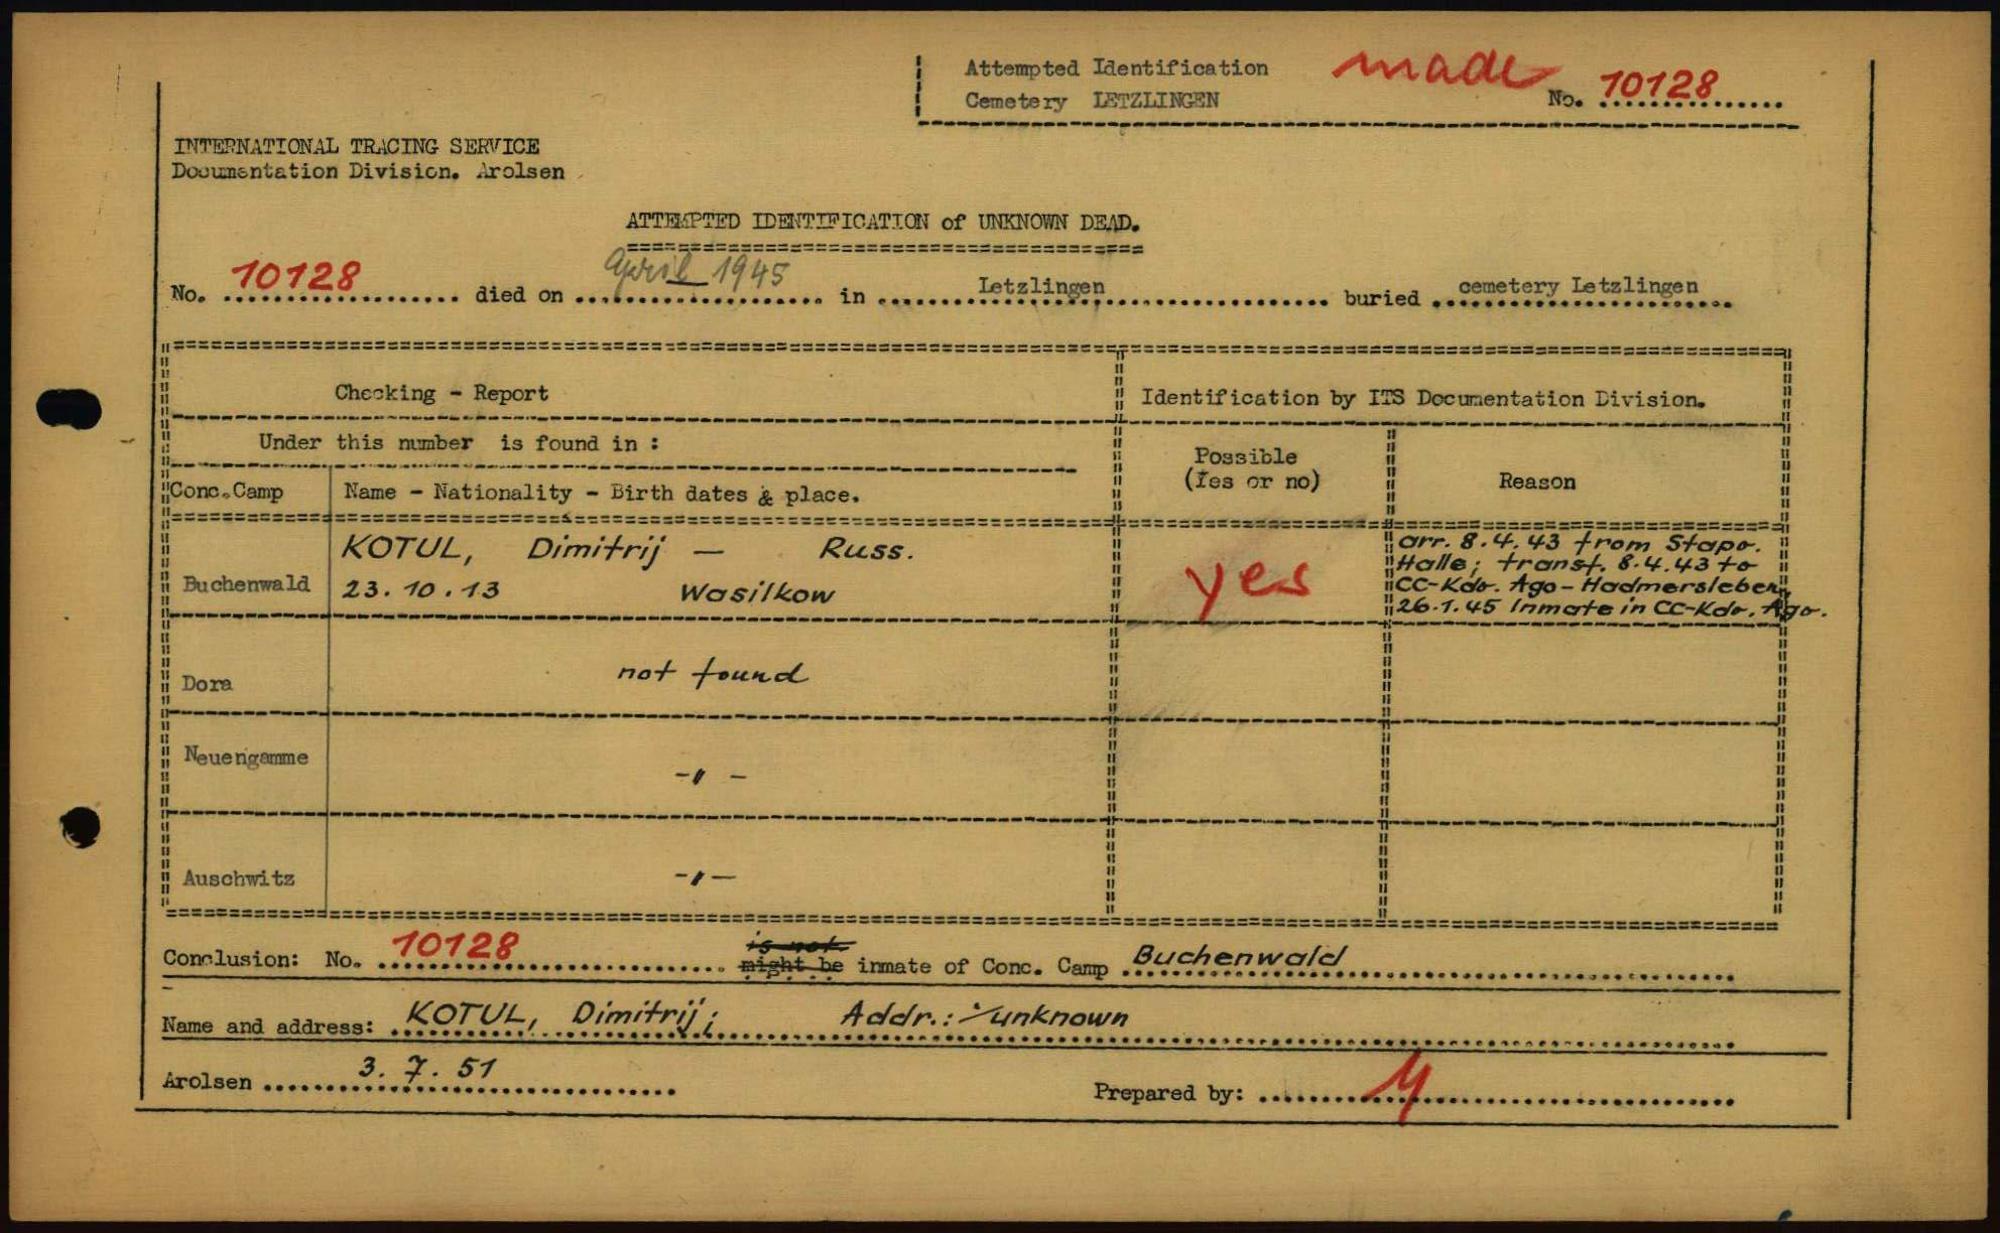 Attempted Identification made
Cemetery LETZLINGEN No. 10128
INTERNATIONAL TRACING SERVICE
Documentation Division. Arolsen
ATTEMPTED IDENTIFICATION of UNKNOWN DEAD.
No. 10128 died on April 1945 in Letzlingen buried cemetery Letzlingen
Checking - Report
Identification by ITS Documentation Division.
Under this number is found in :
Possible
(Yes or no)
Reason
Conc.Camp Name - Nationality - Birth dates & place.
Buchenwald
KOTUL, Dimitrij — Russ.
23.10.13 Wasilkow
yes
arr. 8.4.43 from Stapo.
Halle; transf. 8.4.43 to
CC-Kdo. Ago-Hadmersleben,
26.1.45 Inmate in CC-Kdo. Ago.
Dora not found
Neuengamme -〃-
Auschwitz -〃-
is not
Conclusion: No. 10128 might be inmate of Conc. Camp Buchenwald
Name and address: KOTUL, Dimitrij; Addr.: unknown
Arolsen 3.7.51
Prepared by: